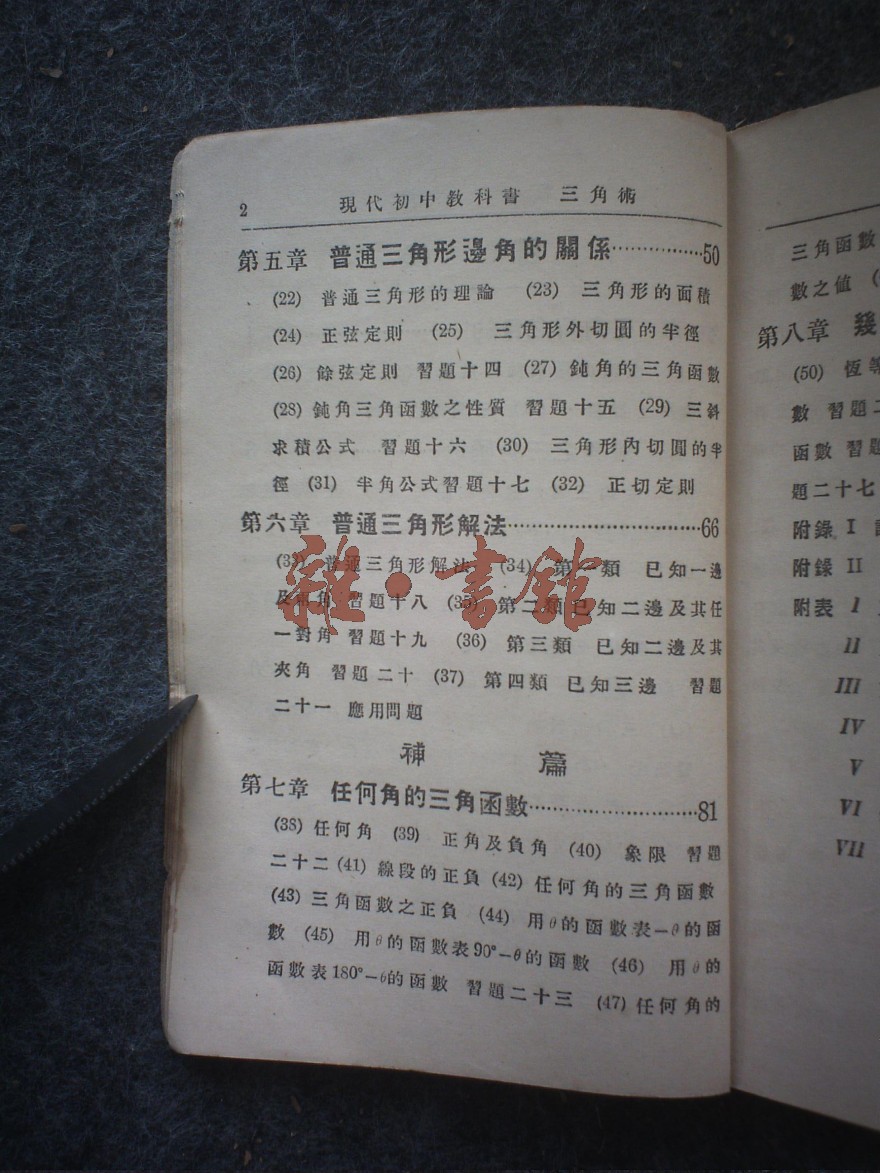 2 現代初中教科書 三角術
第五章 普通三角形邊角的關係……………50
(22) 普通三角形的理論 (23) 三角形的面積
(24) 正弦定則 (25) 三角形外切圓的半徑
(26) 餘弦定則 習題十四 (27) 鈍角的三角函數
(28) 鈍角三角函數之性質 習題十五 (29) 三斜
求積公式 習題十六 (30) 三角形內切圓的半
徑 (31) 半角公式習題十七 (32) 正切定則
第六章 普通三角形解法……………………66
(33) 普通三角形解法 (34) 第一類 已知一邊
及兩角 習題十八 (35) 第二類 已知二邊及其任
一對角 習題十九 (36) 第三類 已知二邊及其
夾角 習題二十 (37) 第四類 已知三邊 習題
二十一 應用問題
補篇
第七章 任何角的三角函數…………………81
(38) 任何角 (39) 正角及負角 (40) 象限 習題
二十二 (41) 線段的正負 (42) 任何角的三角函數
(43) 三角函數之正負 (44) 用θ的函數表－θ的函
數 (45) 用θ的函數表90°－θ的函數 (46) 用θ的
函數表180°－θ的函數 習題二十三 (47) 任何角的
三角函數
數之值
第八章 幾
(50) 恆等
數 習題二
函數 習題
題二十七
附錄 I
附錄 II
附表 I
II
III
IV
V
VI
VII
雜·書館